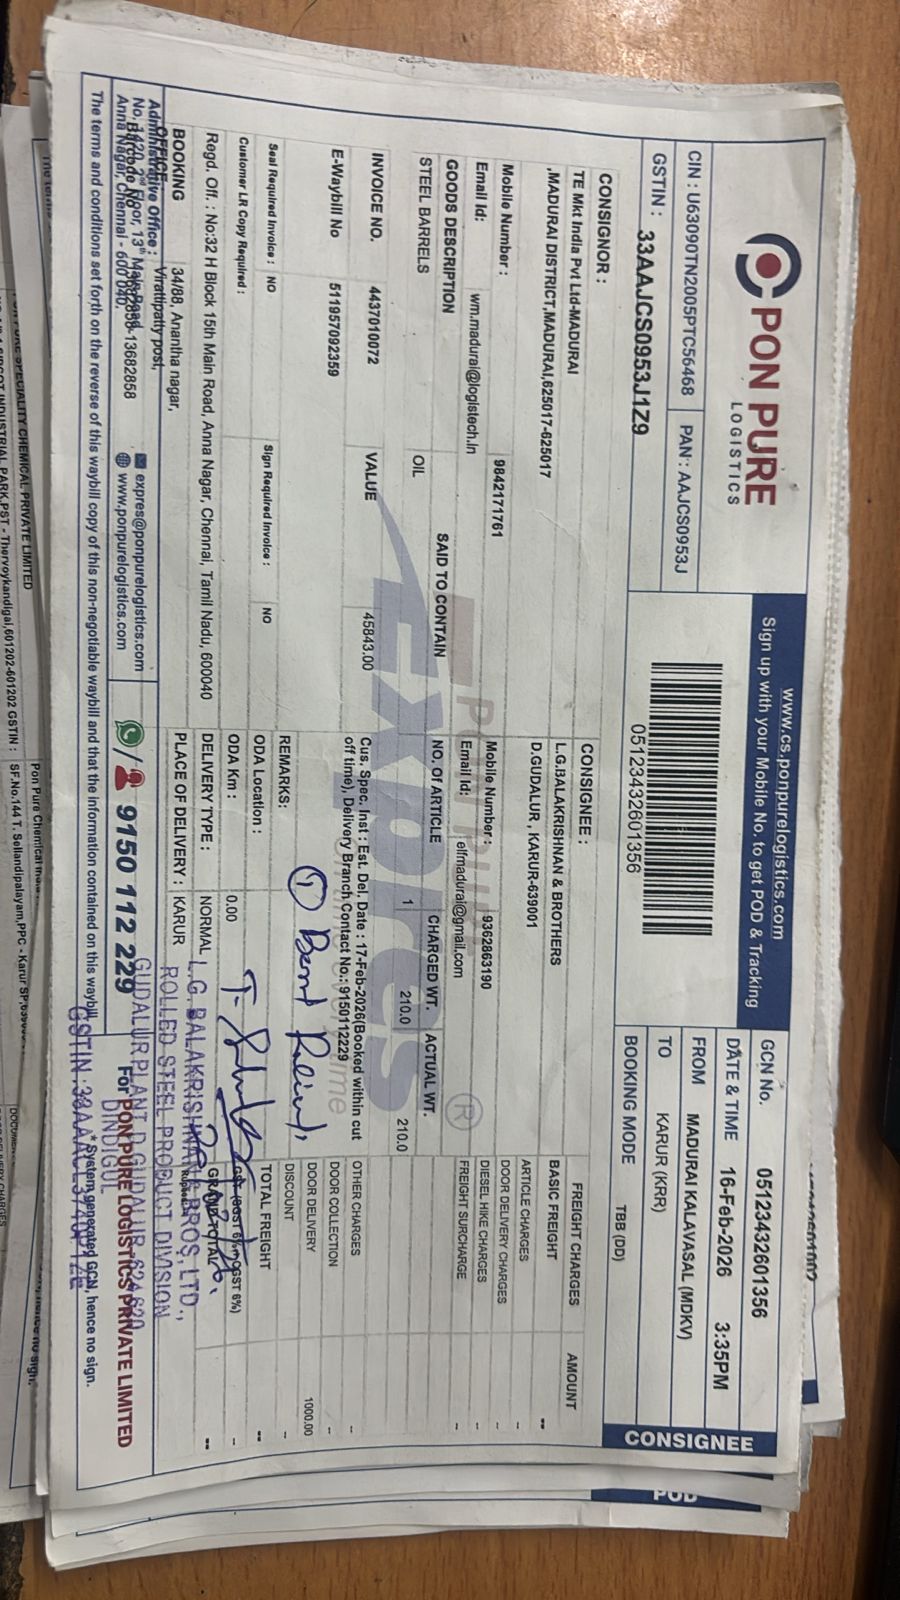 PON PURE
LOGISTICS
CIN : U63090TN2005PTC56468
PAN : AAJCS0953J
GSTIN : 33AAJCS0953J1Z9
www.cs.ponpurelogistics.com
Sign up with your Mobile No. to get POD & Tracking
0512343260​1356
GCN No. 05123432601356
DATE & TIME 16-Feb-2026 3:35PM
FROM MADURAI KALAVASAL (MDKV)
TO KARUR (KRR)
BOOKING MODE TBB (DD)
CONSIGNEE
CONSIGNOR :
TE Mkt India Pvt Ltd-MADURAI
,MADURAI DISTRICT,MADURAI,625017-625017
Mobile Number : 9842171761
Email Id: wm.madurai@logistech.in
CONSIGNEE :
L.G.BALAKRISHNAN & BROTHERS
D.GUDALUR , KARUR-639001
Mobile Number : 9362863190
Email Id: elfmadurai@gmail.com
GOODS DESCRIPTION SAID TO CONTAIN NO. Of ARTICLE CHARGED WT. ACTUAL WT.
STEEL BARRELS OIL 1 210.0 210.0
INVOICE NO. 4437010072 VALUE 45843.00
E-Waybill No 511957092359
Seal Required Invoice : NO Sign Required Invoice : NO
Customer LR Copy Required :
Cus. Spec. Inst : Est. Del. Date : 17-Feb-2026(Booked within cut
off time), Delivery Branch Contact No.: 9150112229
REMARKS:
ODA Location :
ODA Km : 0.00
DELIVERY TYPE : NORMAL
PLACE OF DELIVERY : KARUR
FREIGHT CHARGES AMOUNT
BASIC FREIGHT --
ARTICLE CHARGES --
DOOR DELIVERY CHARGES --
DIESEL HIKE CHARGES --
FREIGHT SURCHARGE --
OTHER CHARGES --
DOOR COLLECTION --
DOOR DELIVERY 1000.00
DISCOUNT --
TOTAL FREIGHT --
GRAND TOTAL --
Regd. Off. : No:32 H Block 15th Main Road, Anna Nagar, Chennai, Tamil Nadu, 600040
BOOKING
OFFICE
34/88, Anantha nagar,
Virattipatty post,
Administrative Office :
No. 1420, 2nd Floor, 13th Main Road,
Anna Nagar, Chennai - 600 040.
Barcode No
13682858-13682858
expres@ponpurelogistics.com
www.ponpurelogistics.com
/ 9150 112 229
For PON PURE LOGISTICS PRIVATE LIMITED
The terms and conditions set forth on the reverse of this waybill copy of this non-negotiable waybill and that the information contained on this waybill.
* System generated GCN, hence no sign.
L.G. BALAKRISHNAN & BROS, LTD.,
ROLLED STEEL PRODUCT DIVISION
GUDALUR PLANT D.GUDALUR-624620
DINDIGUL
POD
PRIVATE LIMITED
Thervoykandigai,601202-601202 GSTIN :
SF.No.144 T. Sellandipalayam,PPC - Karur